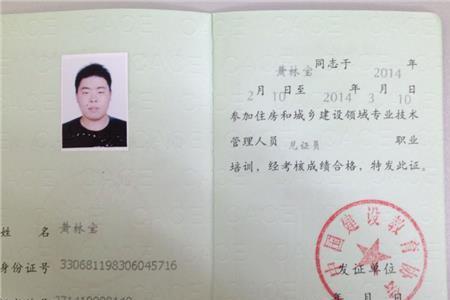 姓 名 黄林宝
身份证号 330681198306045716
黄林宝 同志于 2014 年
2 月 10 日至 2014 年 3 月 10 日
参加住房和城乡建设领域专业技术
管理人员 见证员 职业
培训，经考核成绩合格，特发此证。
中国建设教育协会
发证单位
年 月 日